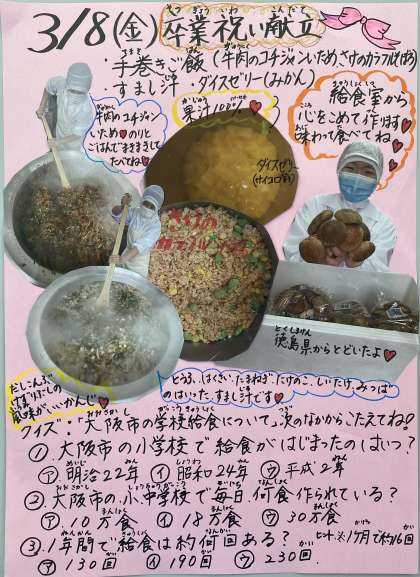 3/8(金)卒業祝い献立
・手巻きご飯(牛肉のコチジャンいため、さけのカラフルそぼろ)
・すまし汁 ・ダイスゼリー(みかん)
牛肉のコチジャン
いため♥のりと
ごはんでまきまきして
たべてね♥
果汁100%♥
ダイスゼリー
(サイコロ形)
給食室から
心をこめて作ります
味わって食べてね♥
さけの
カラフルそぼろ
だしこんぶ
けずりぶしの
風味がいいかんじ♥
徳島県からとどいたよ♥
とうふ、はくさい、たまねぎ、たけのこ、しいたけ、みつば
のはいった、すまし汁です♥
クイズ:「大阪市の学校給食について」次のなかからこたえてね♡
①大阪市の小学校で給食がはじまったのはいつ?
㋐明治22年 ㋑昭和24年 ㋒平成2年
②大阪市の小、中学校で毎日何食作られている?
㋐10万食 ㋑18万食 ㋒30万食
③1年間で給食は約何回ある? ヒント※1ヶ月で約16回
㋐130回 ㋑190回 ㋒230回